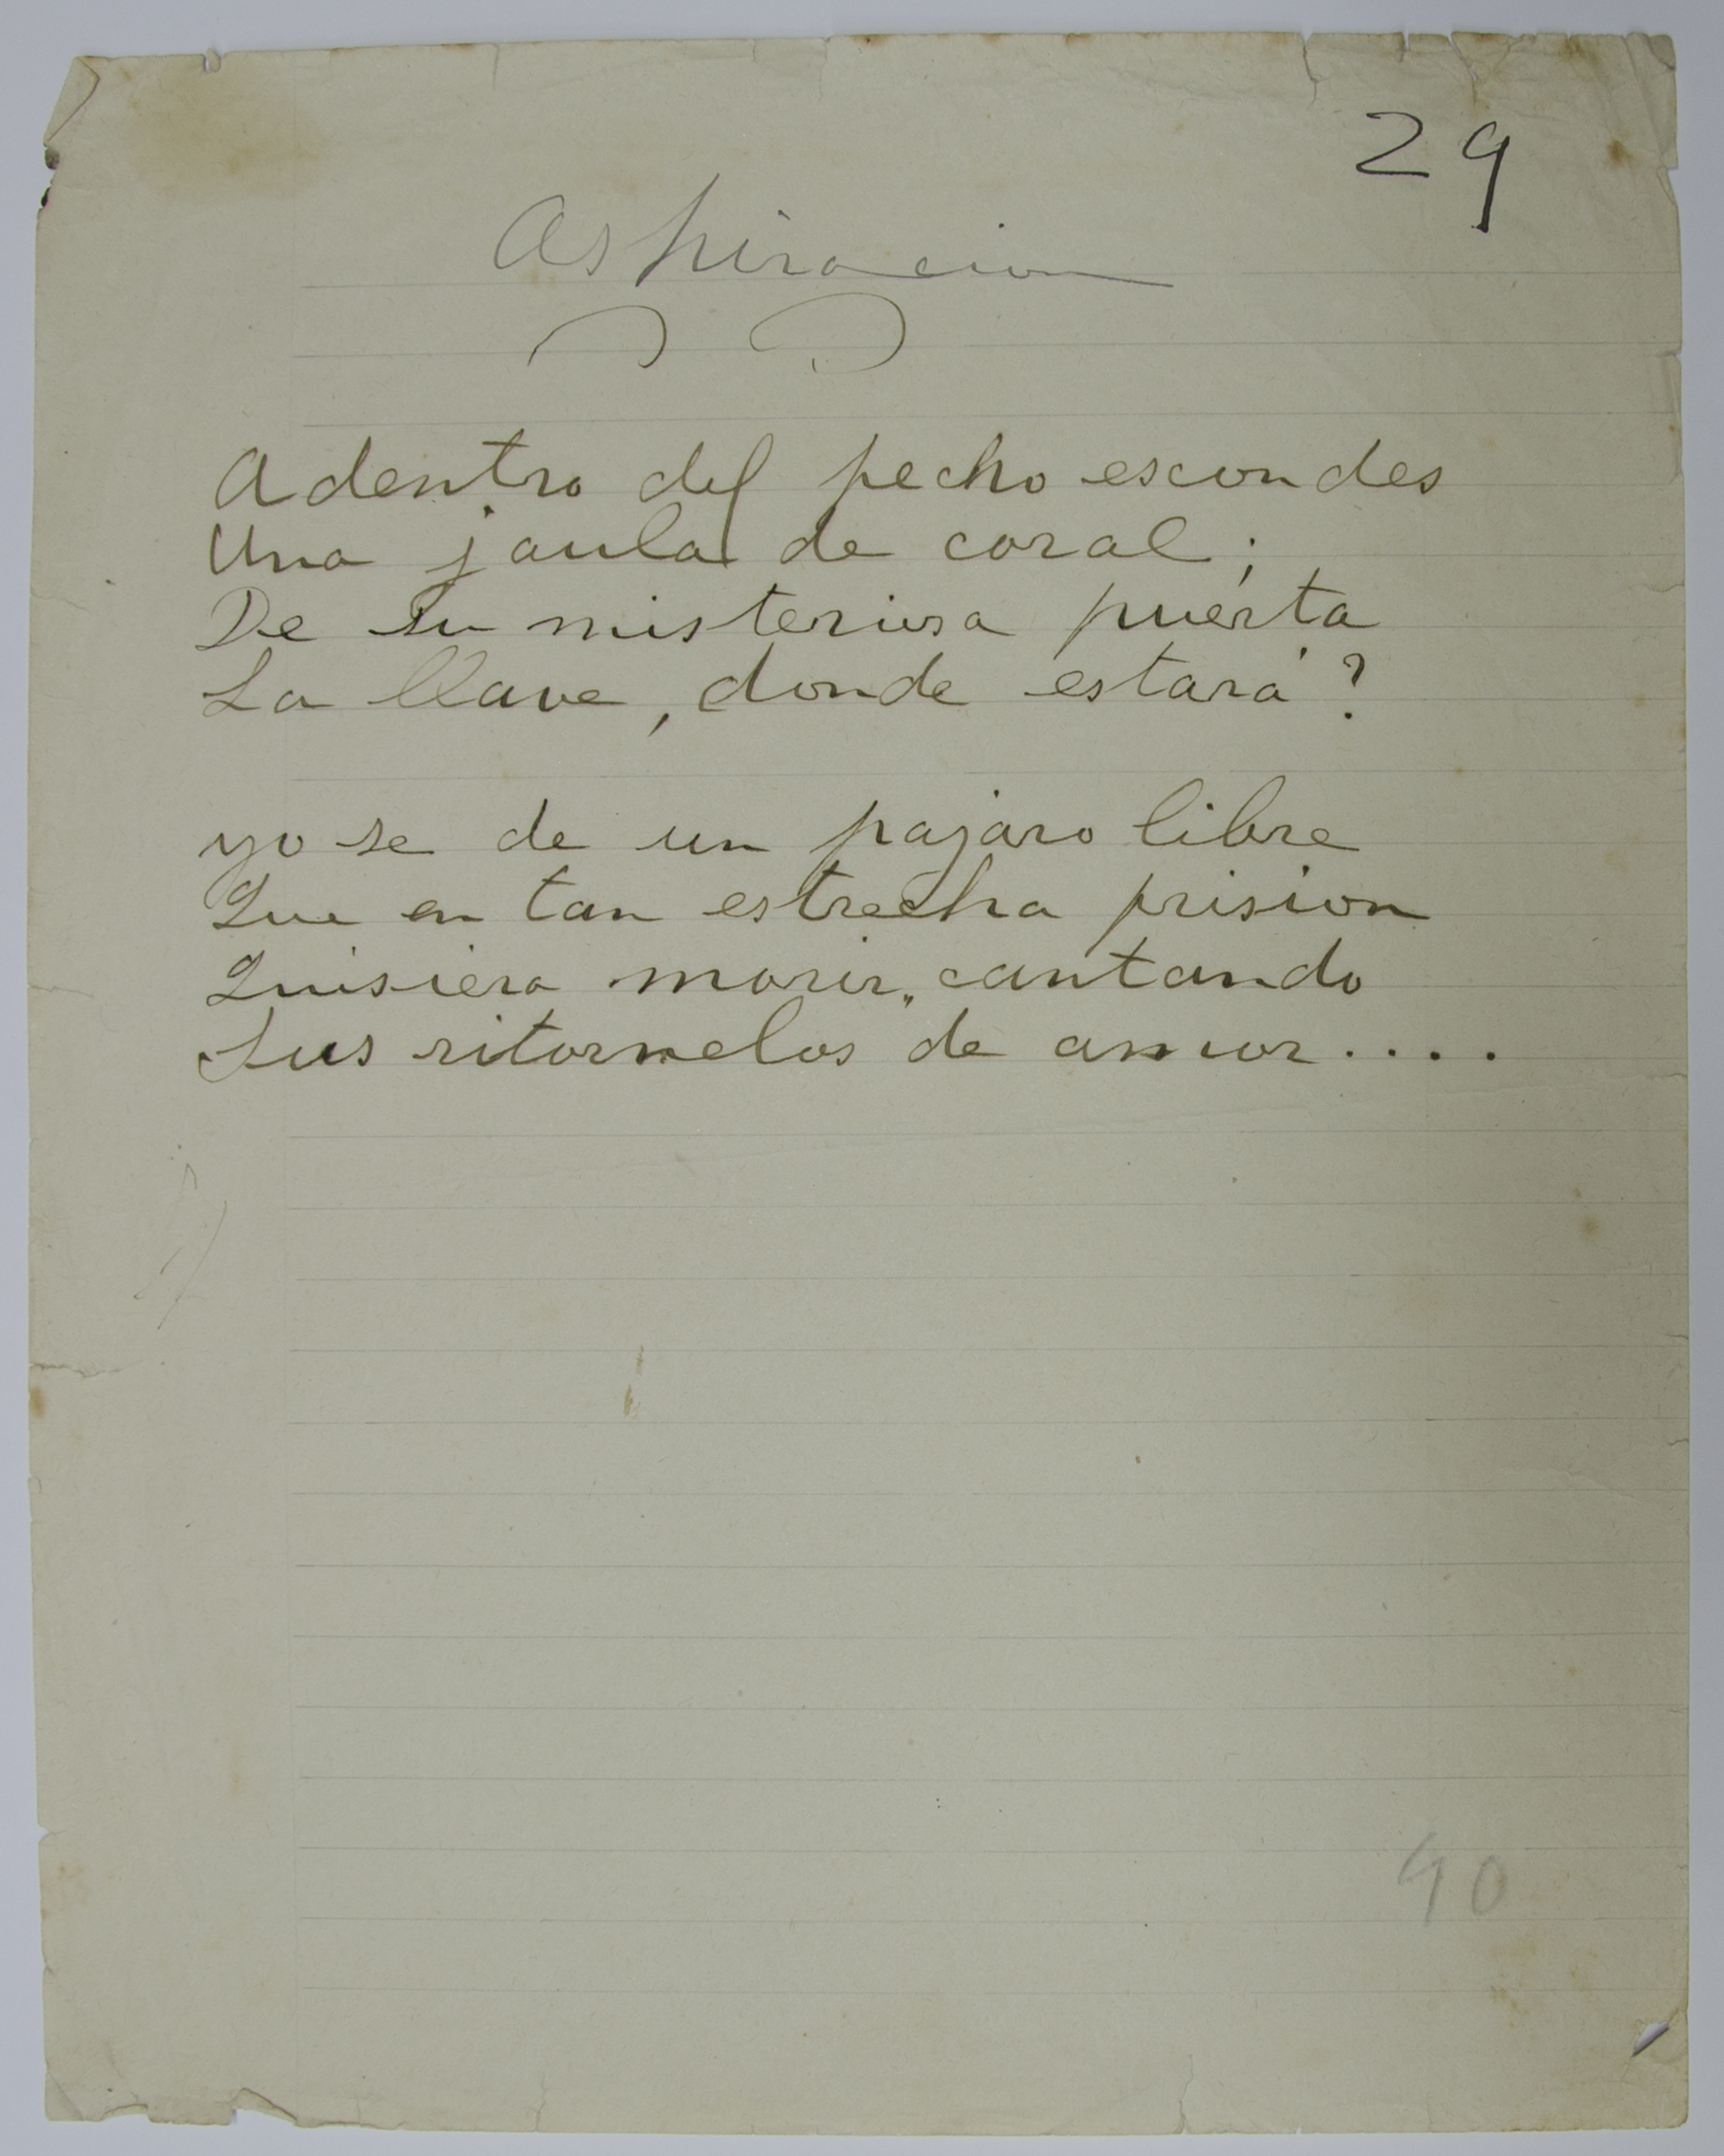 29
Aspiracion
Adentro del pecho escondes
Una jaula de coral;
De su misteriosa puerta
La llave, donde estará?
yo se de un pajaro libre
Que en tan estrecha prision
Quisiera morir, cantando
Sus ritornelos de amor....
40